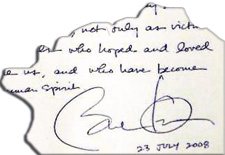 , not only as victims
who hoped and loved
us, and who have become
spirit
23 JULY 2008